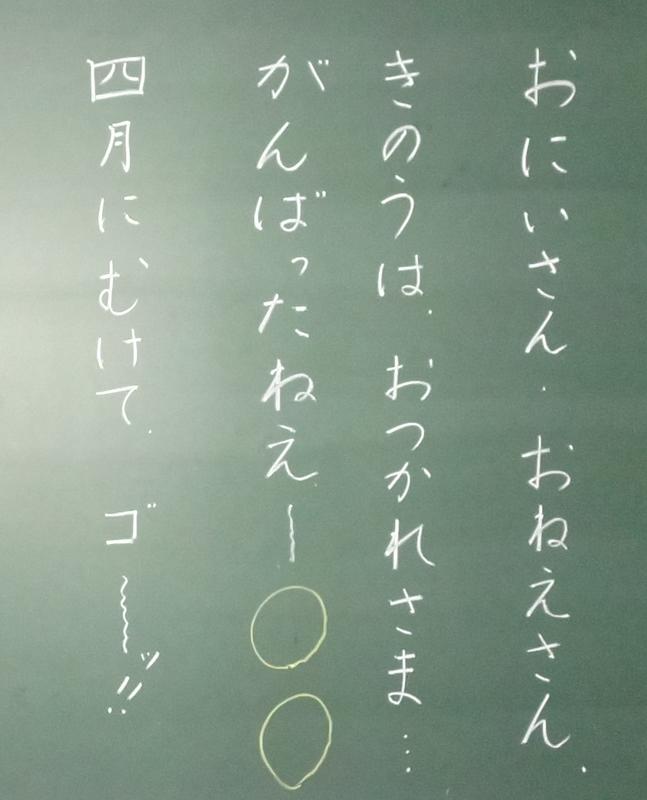 おにいさん．おねえさん．
きのうは．おつかれさま…
がんばったねえ〜○○
四月にむけて．ゴ〜〜ッ!!